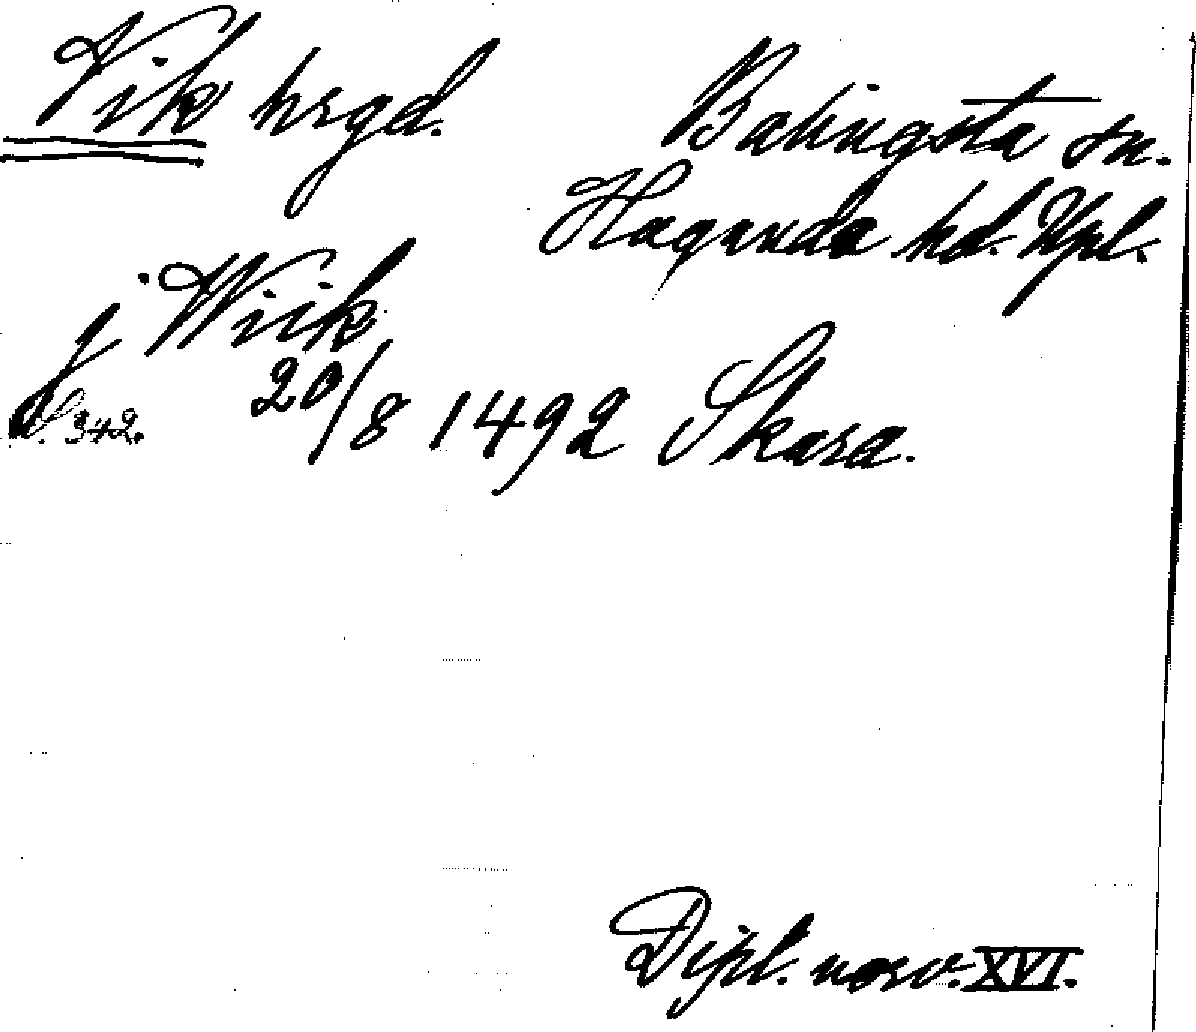 Vik hrgd. Balingsta sn.
Hagunda hd. Upl.
j Wiik
s. 342. 20/8 1492 Skara.
Dipl. norv. XVI.